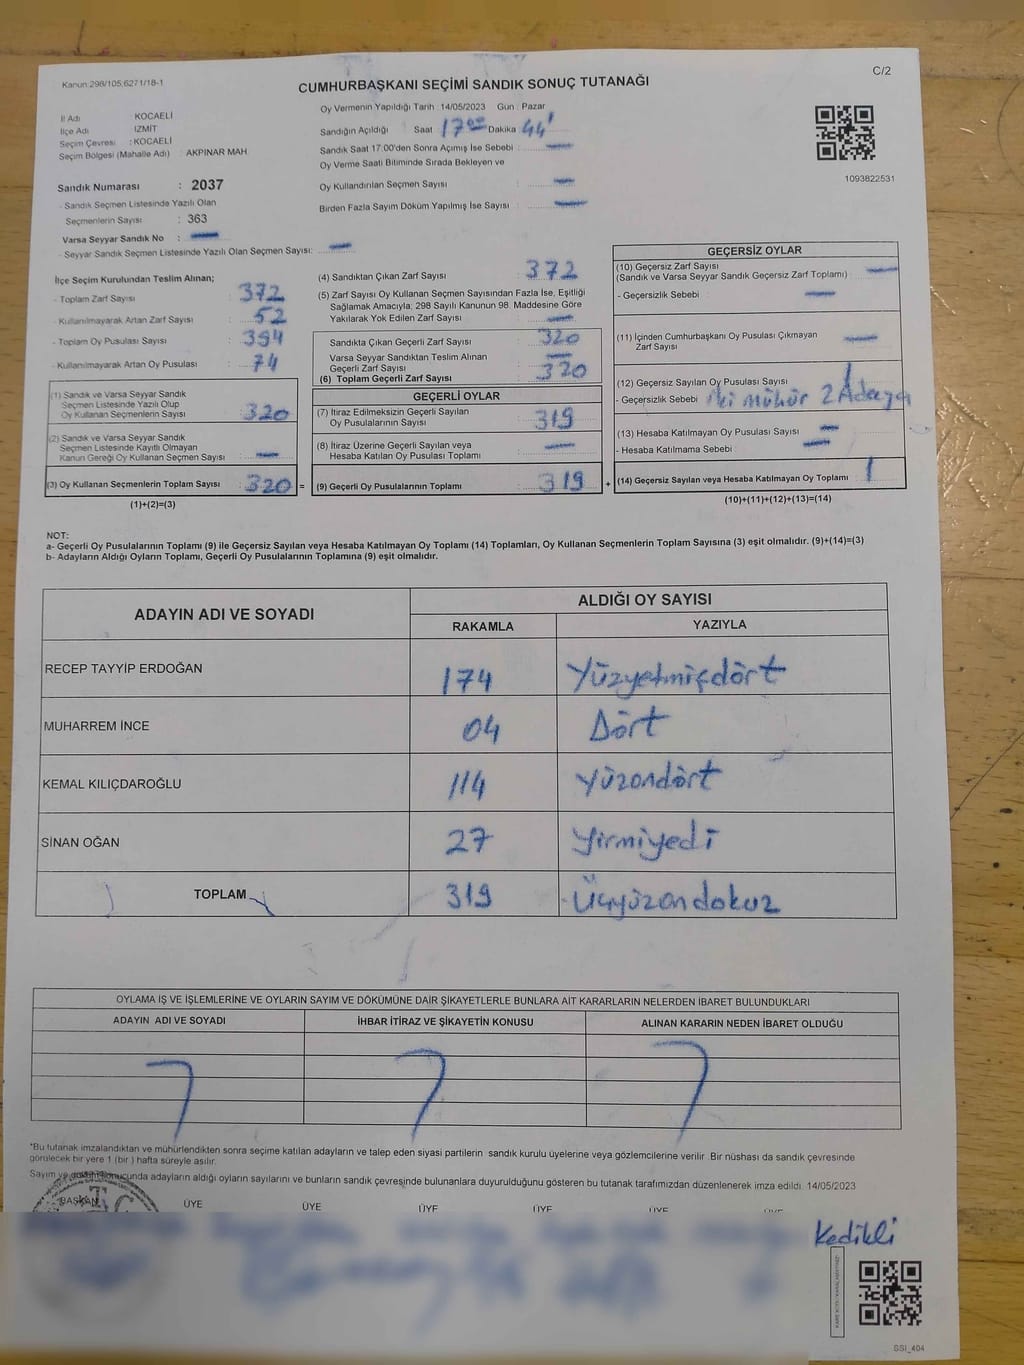 Kanun:298/105;6271/18-1
C/2
CUMHURBAŞKANI SEÇİMİ SANDIK SONUÇ TUTANAĞI
İl Adı KOCAELİ
İlçe Adı İZMİT
Seçim Çevresi : KOCAELİ
Seçim Bölgesi (Mahalle Adı) : AKPINAR MAH.
Sandık Numarası : 2037
- Sandık Seçmen Listesinde Yazılı Olan
Seçmenlerin Sayısı : 363
Varsa Seyyar Sandık No :
- Seyyar Sandık Seçmen Listesinde Yazılı Olan Seçmen Sayısı:
Oy Vermenin Yapıldığı Tarih : 14/05/2023 Gün : Pazar
Sandığın Açıldığı Saat 17 00 Dakika 44'
Sandık Saat 17:00'den Sonra Açımış İse Sebebi :
Oy Verme Saati Bitiminde Sırada Bekleyen ve
Oy Kullandırılan Seçmen Sayısı :
Birden Fazla Sayım Döküm Yapılmış İse Sayısı :
1093822531
İlçe Seçim Kurulundan Teslim Alınan;
- Toplam Zarf Sayısı : 372
- Kullanılmayarak Artan Zarf Sayısı : 52
- Toplam Oy Pusulası Sayısı : 394
- Kullanılmayarak Artan Oy Pusulası : 74
(1) Sandık ve Varsa Seyyar Sandık
Seçmen Listesinde Yazılı Olup
Oy Kullanan Seçmenlerin Sayısı : 320
(2) Sandık ve Varsa Seyyar Sandık
Seçmen Listesinde Kayıtlı Olmayan
Kanun Gereği Oy Kullanan Seçmen Sayısı :
(3) Oy Kullanan Seçmenlerin Toplam Sayısı : 320 =
(1)+(2)=(3)
(4) Sandıktan Çıkan Zarf Sayısı : 372
(5) Zarf Sayısı Oy Kullanan Seçmen Sayısından Fazla İse, Eşitliği
Sağlamak Amacıyla; 298 Sayılı Kanunun 98. Maddesine Göre
Yakılarak Yok Edilen Zarf Sayısı :
Sandıkta Çıkan Geçerli Zarf Sayısı : 320
Varsa Seyyar Sandıktan Teslim Alınan
Geçerli Zarf Sayısı :
(6) Toplam Geçerli Zarf Sayısı : 320
GEÇERLİ OYLAR
(7) İtiraz Edilmeksizin Geçerli Sayılan
Oy Pusulalarının Sayısı : 319
(8) İtiraz Üzerine Geçerli Sayılan veya
Hesaba Katılan Oy Pusulası Toplamı :
(9) Geçerli Oy Pusulalarının Toplamı : 319 +
GEÇERSİZ OYLAR
(10) Geçersiz Zarf Sayısı
(Sandık ve Varsa Seyyar Sandık Geçersiz Zarf Toplamı) :
- Geçersizlik Sebebi :
(11) İçinden Cumhurbaşkanı Oy Pusulası Çıkmayan
Zarf Sayısı :
(12) Geçersiz Sayılan Oy Pusulası Sayısı : 1
- Geçersizlik Sebebi : iki mühür 2 Adaya
(13) Hesaba Katılmayan Oy Pusulası Sayısı :
- Hesaba Katılmama Sebebi :
(14) Geçersiz Sayılan veya Hesaba Katılmayan Oy Toplamı : 1
(10)+(11)+(12)+(13)=(14)
NOT:
a- Geçerli Oy Pusulalarının Toplamı (9) ile Geçersiz Sayılan veya Hesaba Katılmayan Oy Toplamı (14) Toplamları, Oy Kullanan Seçmenlerin Toplam Sayısına (3) eşit olmalıdır. (9)+(14)=(3)
b- Adayların Aldığı Oyların Toplamı, Geçerli Oy Pusulalarının Toplamına (9) eşit olmalıdır.
ADAYIN ADI VE SOYADI ALDIĞI OY SAYISI
RAKAMLA YAZIYLA
RECEP TAYYİP ERDOĞAN 174 Yüzyetmişdört
MUHARREM İNCE 04 Dört
KEMAL KILIÇDAROĞLU 114 Yüzondört
SİNAN OĞAN 27 Yirmiyedi
TOPLAM 319 Üçyüzondokuz
OYLAMA İŞ VE İŞLEMLERİNE VE OYLARIN SAYIM VE DÖKÜMÜNE DAİR ŞİKAYETLERLE BUNLARA AİT KARARLARIN NELERDEN İBARET BULUNDUKLARI
ADAYIN ADI VE SOYADI İHBAR İTİRAZ VE ŞİKAYETİN KONUSU ALINAN KARARIN NEDEN İBARET OLDUĞU
*Bu tutanak imzalandıktan ve mühürlendikten sonra seçime katılan adayların ve talep eden siyasi partilerin sandık kurulu üyelerine veya gözlemcilerine verilir. Bir nüshası da sandık çevresinde
görülecek bir yere 1 (bir) hafta süreyle asılır.
Sayım ve döküm sonucunda adayların aldığı oyların sayılarını ve bunların sandık çevresinde bulunanlara duyurulduğunu gösteren bu tutanak tarafımızdan düzenlenerek imza edildi. 14/05/2023
BAŞKAN ÜYE ÜYE ÜYE ÜYE ÜYE ÜYE
T.C.
Kedikli
SSİ_404